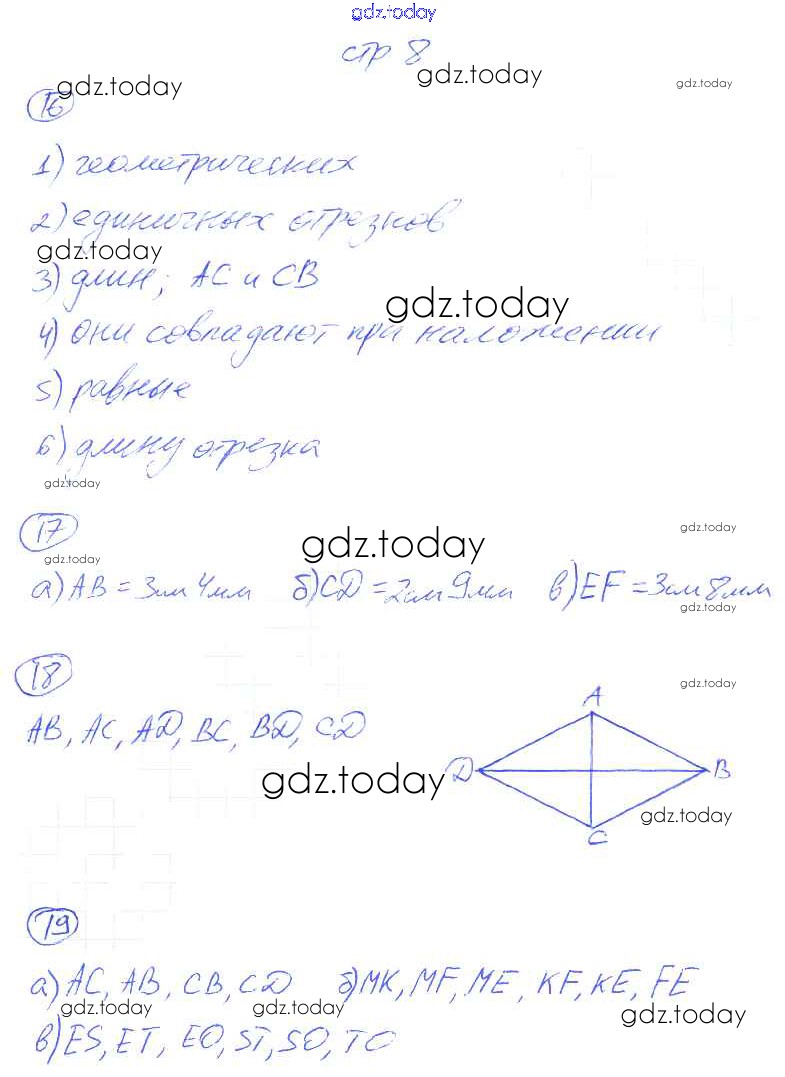 gdz.today
стр 8
gdz.today
gdz.today
gdz.today
16
1) геометрических
2) единичных отрезков
gdz.today
3) длин; AC и CB
gdz.today
4) они совпадают при наложении
5) равные
6) длину отрезка
gdz.today
17
gdz.today
gdz.today
gdz.today
а) AB = 3см 4мм б) CD = 2см 9мм в) EF = 3см 8мм
gdz.today
18
gdz.today
A
AB, AC, AD, BC, BD, CD
D B
gdz.today
gdz.today
C
19
а) AC, AB, CB, CD б) MK, MF, ME, KF, KE, FE
gdz.today gdz.today gdz.today
в) ES, ET, EO, ST, SO, TO